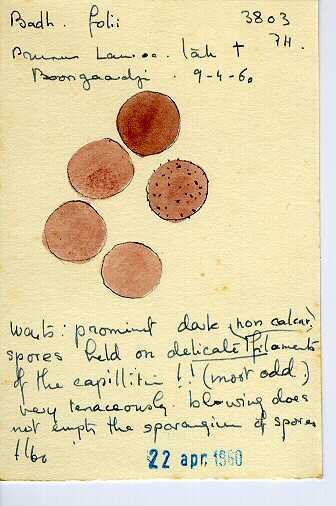 Badh. folii 3803
Prunus Lauroc. † 7H.
Boongaardji. 9-4-60
warts: prominent dark (non calcar.)
spores held on delicate filaments
of the capillitium !! (most odd)
very tenaceously. blowing does
not empty the sporangium of spores
22 apr. 1960